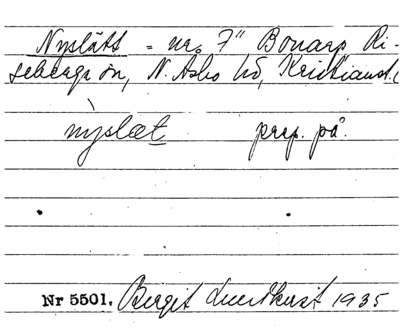 Nyslätt = nr. 7" Bonarp Ri-
seberga sn, N. Åsbo hd, Kristianst. l
nỳslæt prep. på.
Nr 5501. Birgit Lundkvist 1935